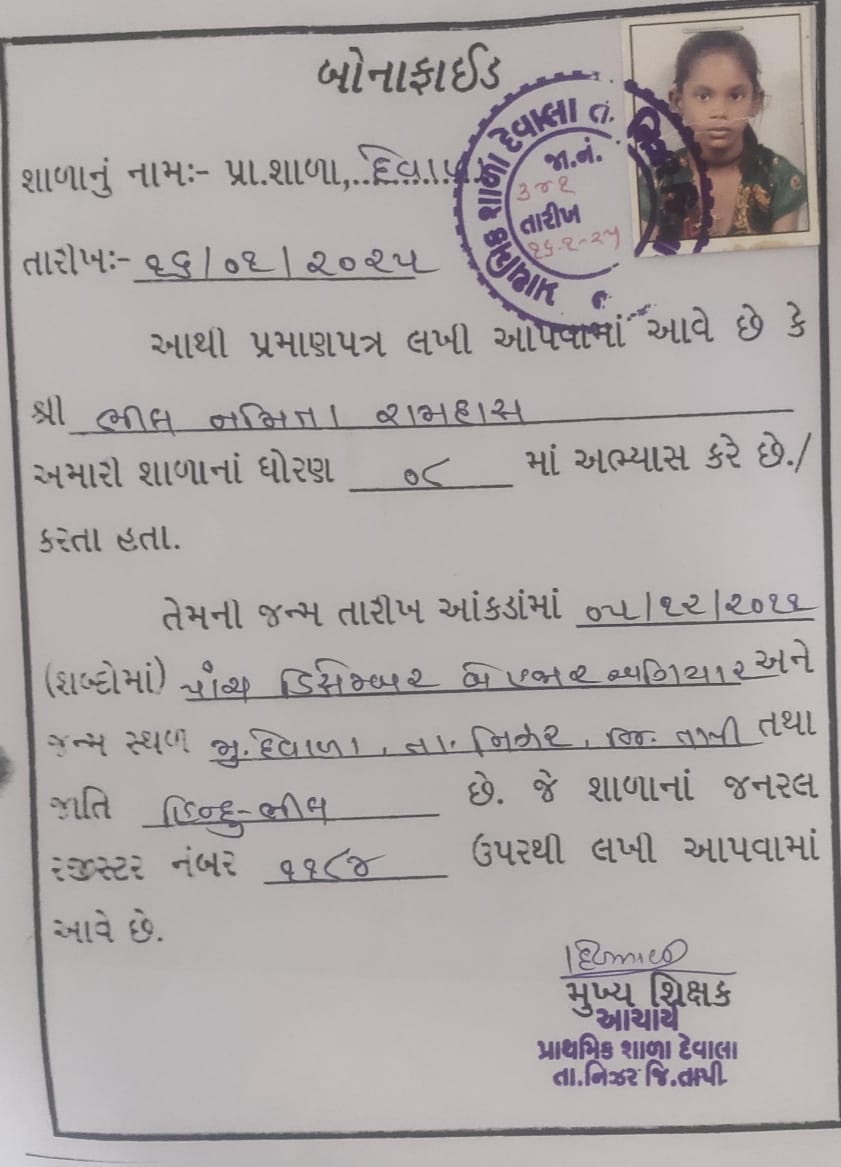 બોનાફાઈડ
શાળાનું નામઃ- પ્રા.શાળા,..દેવાળા
પ્રાથમિક શાળા દેવાલા તા.
જા.નં.
૩૪૧
તારીખ
૨૬-૧-૨૫
તારીખઃ- ૨૬/૦૧/૨૦૨૫
આથી પ્રમાણપત્ર લખી આપવામાં આવે છે કે
શ્રી ભીલ નમિતા રામદાસ
અમારી શાળાનાં ધોરણ ૦૮ માં અભ્યાસ કરે છે./
કરતા હતા.
તેમની જન્મ તારીખ આંકડાંમાં ૦૫/૧૨/૨૦૧૧
(શબ્દોમાં) પાંચ ડિસેમ્બર બે હજાર અગિયાર અને
જન્મ સ્થળ મુ.દેવાળા, તા. નિઝર, જિ. તાપી તથા
જાતિ હિન્દુ-ભીલ છે. જે શાળાનાં જનરલ
રજીસ્ટર નંબર ૧૧૮૪ ઉપરથી લખી આપવામાં
આવે છે.
મુખ્ય શિક્ષક
આચાર્ય
પ્રાથમિક શાળા દેવાલા
તા.નિઝર જિ.તાપી